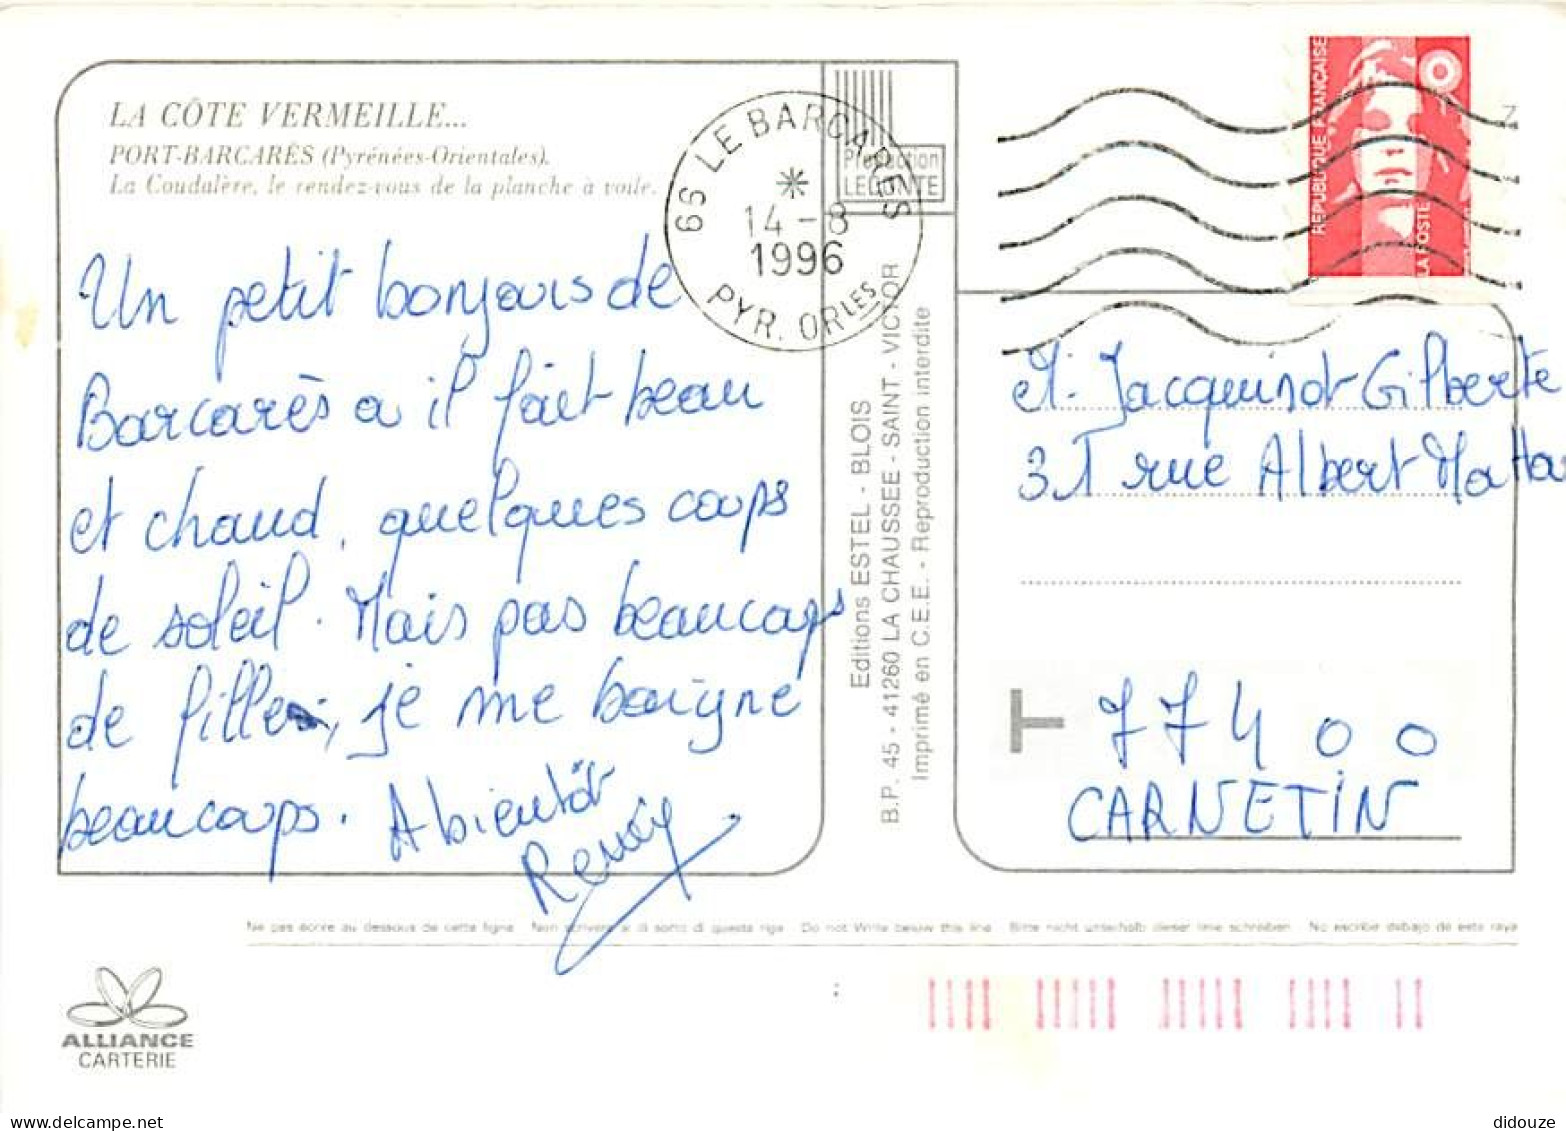 LA CÔTE VERMEILLE...
PORT-BARCARÈS (Pyrénées-Orientales).
La Coudalère, le rendez-vous de la planche à voile.
Un petit bonjours de
Barcarès a il fait beau
et chaud, quelques coups
de soleil. Mais pas beaucoups
de filles, je me baigne
beaucoups. A bientôt
Remy
66 LE BARCARES
14-8
1996
PYR. ORLES
Production
LECONTE
Editions ESTEL - BLOIS
B.P. 45 - 41260 LA CHAUSSEE - SAINT - VICTOR
Imprimé en C.E.E. - Reproduction interdite
REPUBLIQUE FRANÇAISE
LA POSTE
M. Jacquinot Gilberte
31 rue Albert
T 77400
CARNETIN
Ne pas écrire au dessous de cette ligne Non scrivere al di sotto di questa riga Do not Write below this line Bitte nicht unterhalb dieser linie schreiben No escribir debajo de este raya
ALLIANCE
CARTERIE
didouze